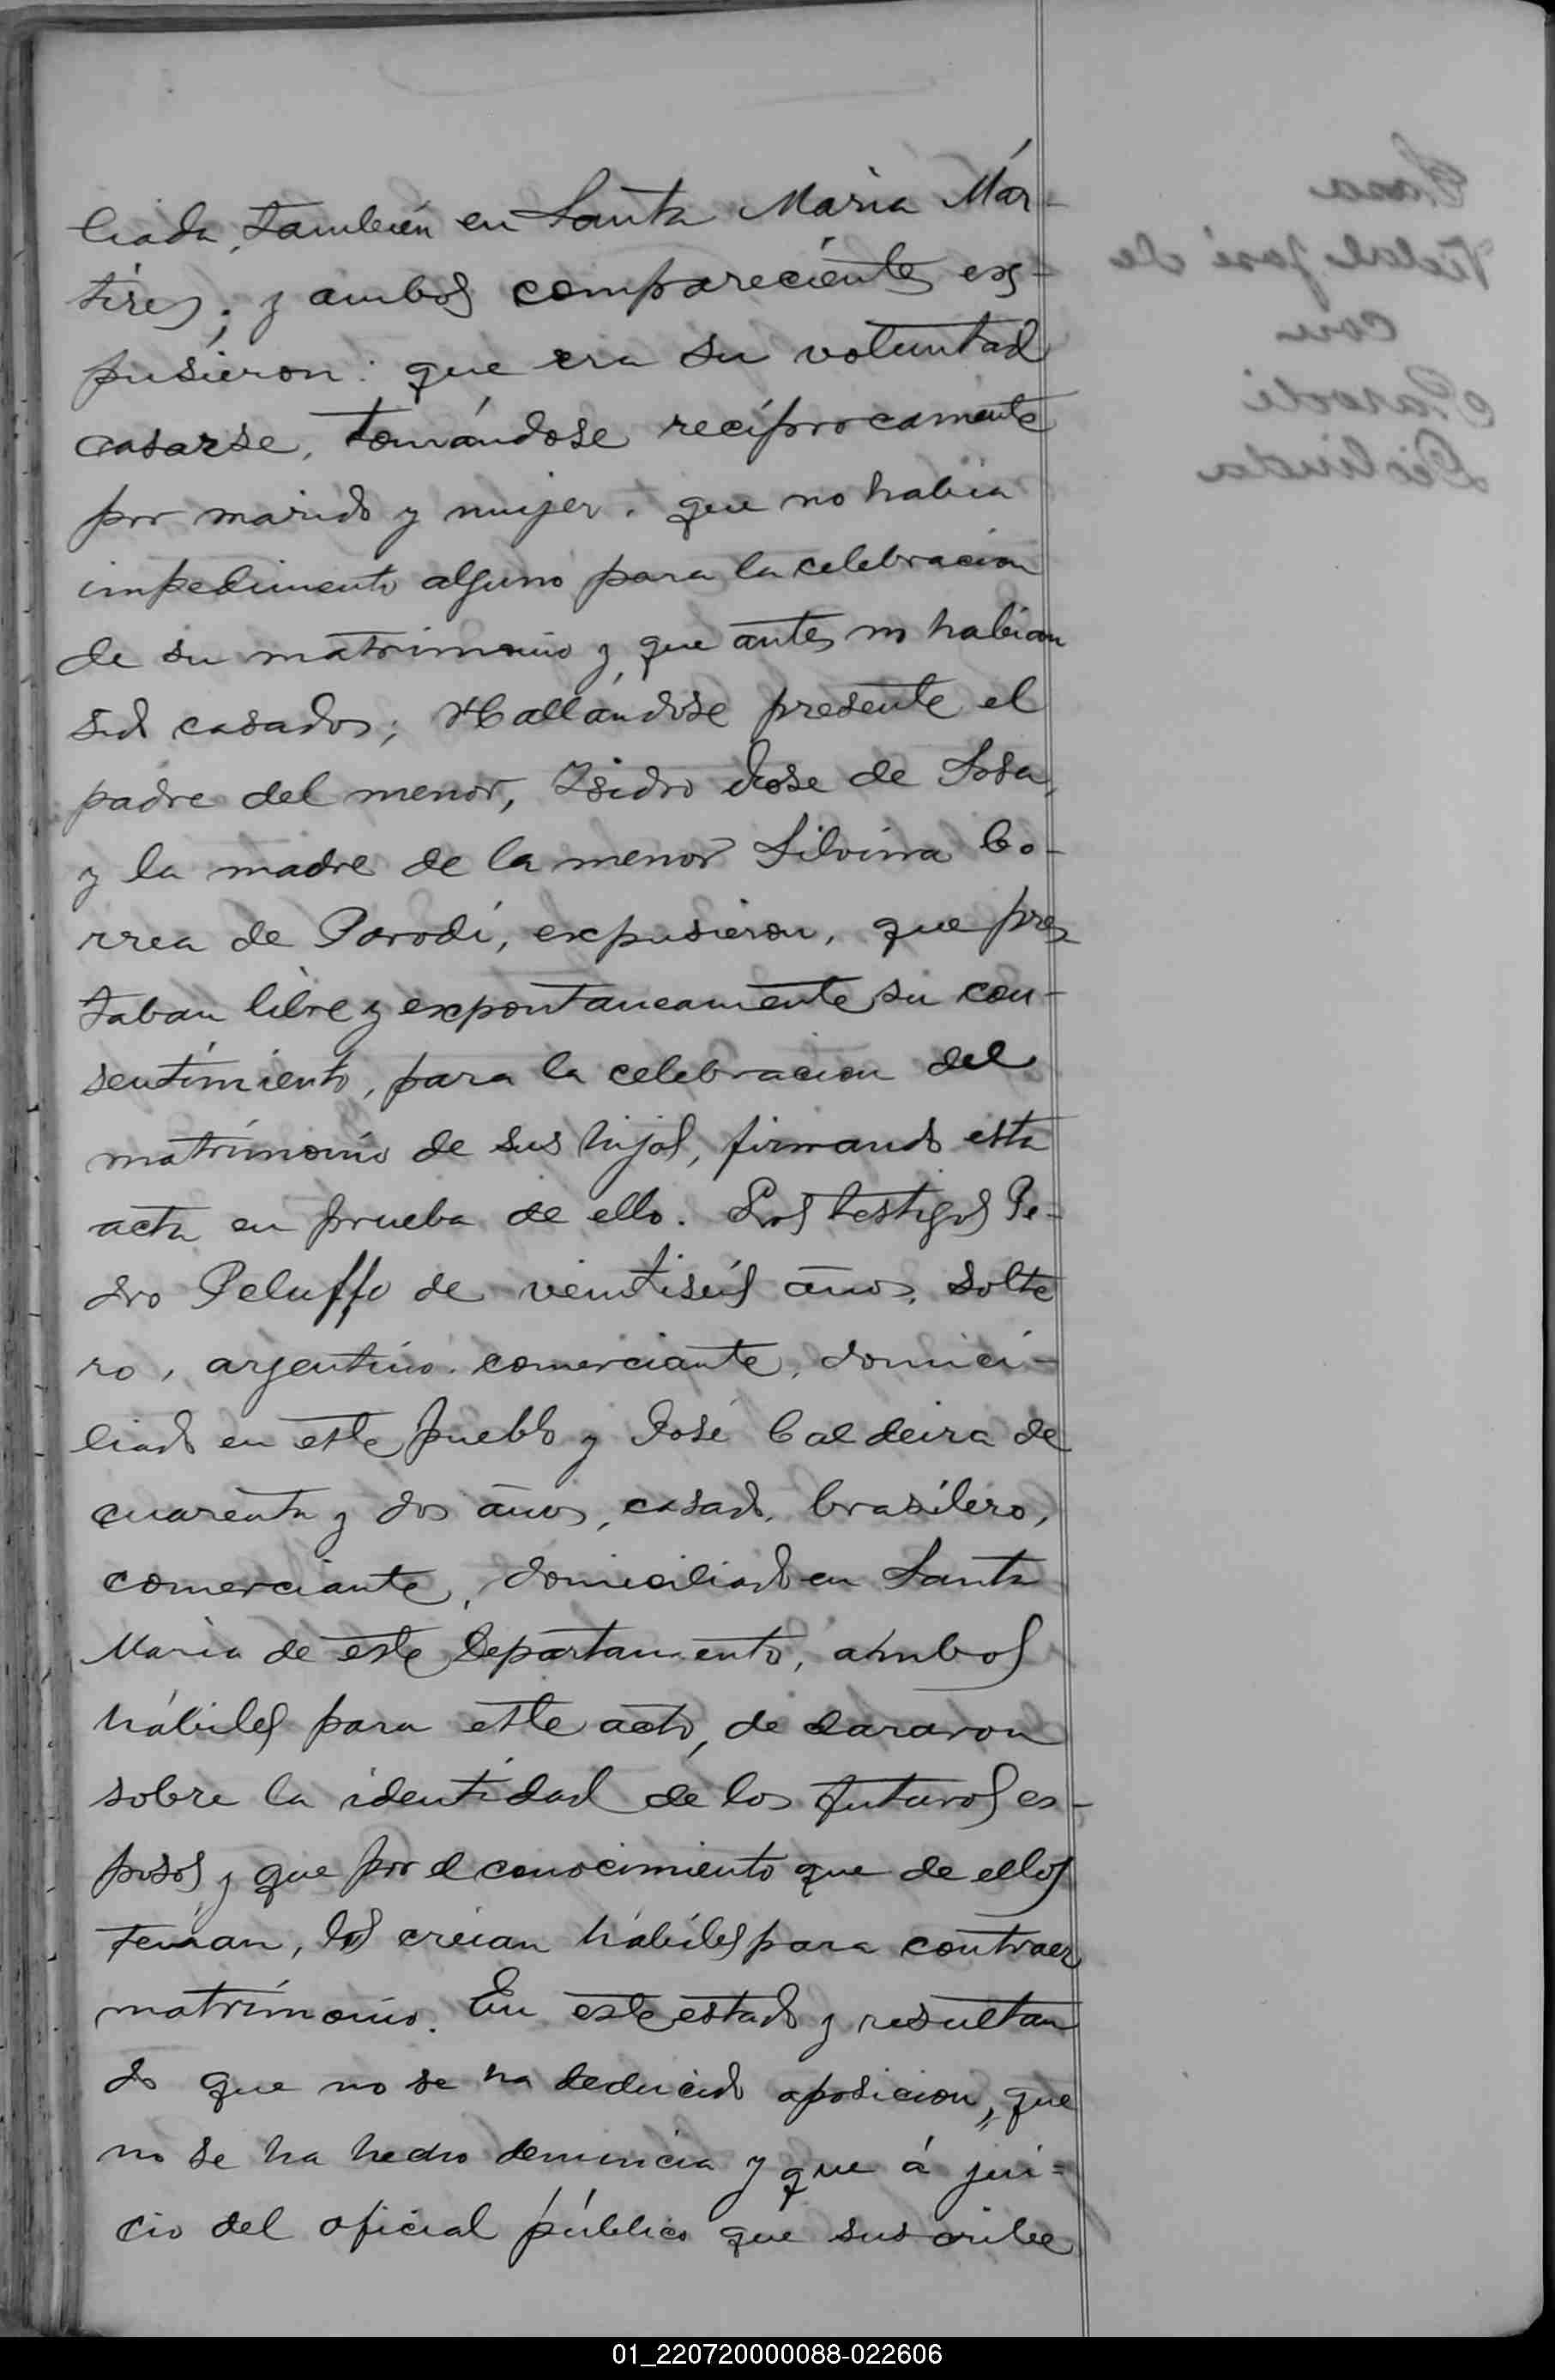 liada, también en Santa Maria Már-
tires; y ambos compareciéntes exs-
pusieron: que era su voluntad
casarse, tomándose recíprocamente
por marido y mujer. que no habia
impedimento alguno para la celebracion
de su matrimonio y que antes no habian
sido casados; Hallándose presente el
padre del menor, Isidro Jose de Sosa,
y la madre de la menor Silvina Co-
rrea de Parodi, expusieron, que pres
taban libre y expontaneamente su con-
sentimiento, para la celebracion del
matrimonio de sus hijos, firmando esta
acta en prueba de ello. Los testigos Pe-
dro Peluffo de veintiseis años, solte
ro, argentino, comerciante, domici-
liado en este pueblo y José Caldeira de
cuarenta y dos años, casado, brasilero,
comerciante, domiciliado en Santa
Maria de este Departamento, ambos
hábiles para este acto, declararon
sobre la identidad de los futuros es-
posos, y que por el conocimiento que de ellos
tenian, los creian hábiles para contraer
matrimonio. En este estado y resultan
do que no se ha deducido oposicion, que
no se ha hecho denuncia y que á jui=
cio del oficial público que suscribe
Sosa
Vidal José de
con
Parodi
Deolinda
01_220720000088-022606